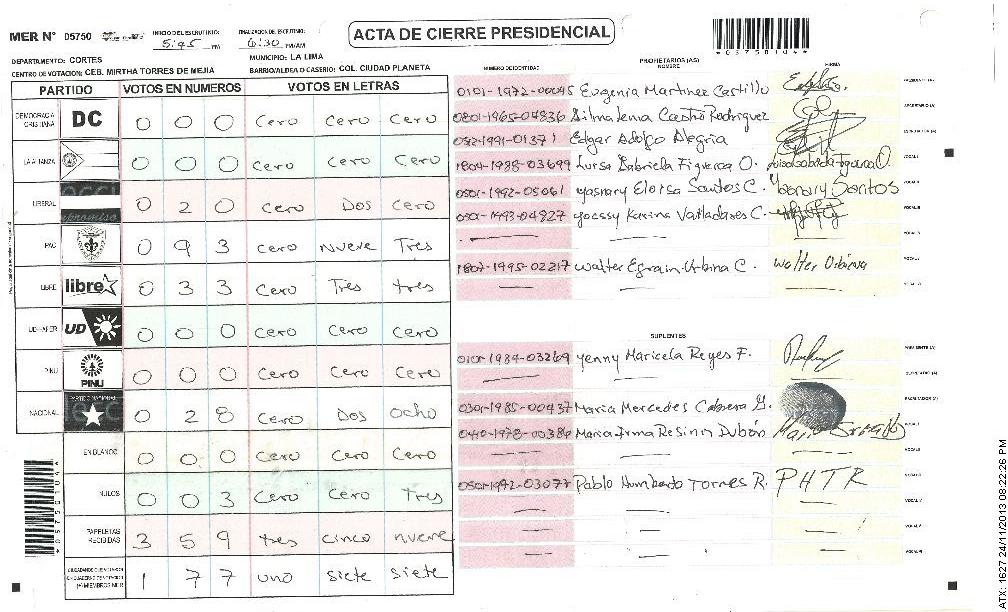 MER N° 05750
INICIO DEL ESCRUTINIO
5:45 PM
FINALIZACION DEL ESCRUTINIO
6:30 PM/AM
ACTA DE CIERRE PRESIDENCIAL
*03750104*
DEPARTAMENTO: CORTES
MUNICIPIO: LA LIMA
CENTRO DE VOTACION: CEB. MIRTHA TORRES DE MEJIA
BARRIO/ALDEA O CASERIO: COL. CIUDAD PLANETA
PARTIDO VOTOS EN NUMEROS VOTOS EN LETRAS
DEMOCRACIA CRISTIANA DC 0 0 0 Cero Cero Cero
LA ALIANZA 0 0 0 Cero Cero Cero
LIBERAL 0 2 0 Cero Dos Cero
PAC 0 9 3 Cero Nueve Tres
LIBRE libre 0 3 3 Cero Tres tres
UD-FAPER UD 0 0 0 Cero Cero Cero
PINU PINU 0 0 0 Cero Cero Cero
NACIONAL PARTIDO NACIONAL 0 2 8 Cero Dos ocho
EN BLANCO 0 0 0 Cero Cero Cero
NULOS 0 0 3 Cero Cero Tres
PAPELETAS RECIBIDAS 3 5 9 tres cinco nueve
1 7 7 uno siete siete
PROPIETARIOS (AS)
NUMERO DE IDENTIDAD NOMBRE FIRMA
0101-1972-00045 Eugenia Martinez Castillo PRESIDENTE (A)
0801-1965-04836 Silmalema Castro Rodriguez SECRETARIO (A)
Edgar Adolfo Alegria ESCRUTADOR (A)
1804-1988-03699 Luisa Gabriela Figueroa O. VOCAL I
0501-1992-05061 Yasnary Eloisa Santos C. Yasnary Santos VOCAL II
0501-1993-04827 Yoessy Karina Valladares C. VOCAL III
VOCAL IV
1807-1995-02217 Walter Efrain Urbina C. Walter Urbina VOCAL V
VOCAL VI
SUPLENTES
Yenny Maricela Reyes F. PRESIDENTE (A)
SECRETARIO (A)
0301-1985-00437 Maria Mercedes Cabrera G. ESCRUTADOR (A)
Maria Irma VOCAL I
VOCAL II
0501-1992-03077 Pablo Humberto Torres R. PHTR VOCAL III
VOCAL IV
VOCAL V
VOCAL VI
ATX: 1627 24/11/2013 08:22:26 PM